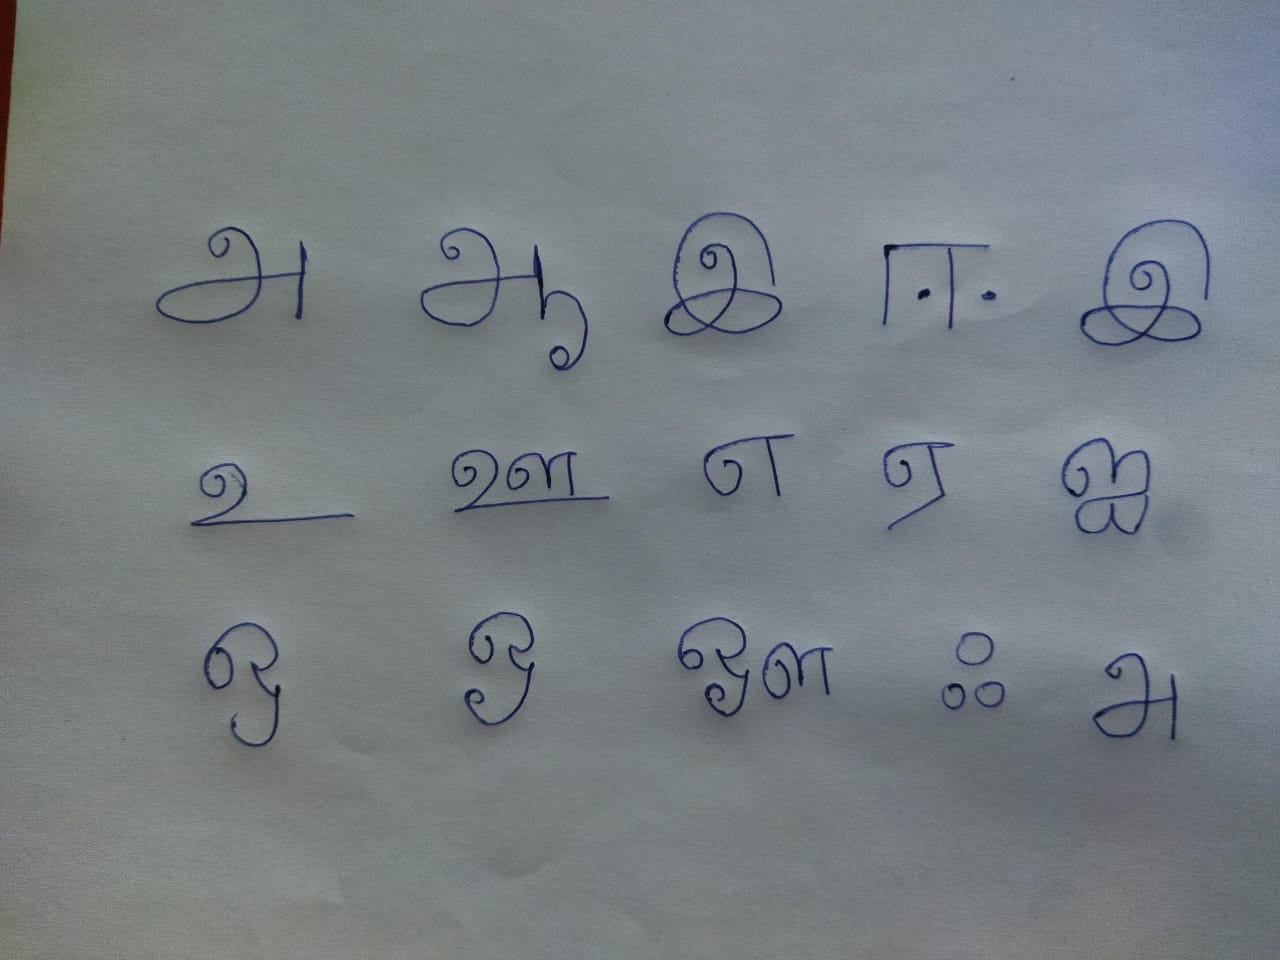 அ ஆ இ ஈ இ
உ ஊ எ ஏ ஐ
ஒ ஓ ஔ ஃ அ